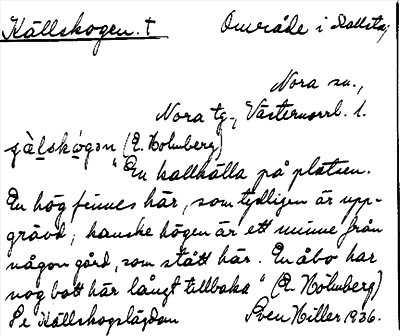 Källskogen. † Område i Hallsta,
Nora sn.,
Nora tg., Västernorrl. l.
(E. Holmberg)
"En kallkälla på platsen.
En hög finnes här, som tydligen är upp-
grävd; kanske högen är ett minne från
någon gård, som stått här. En åbo har
nog bott här långt tillbaka" (E. Holmberg)
Se Källskogslägdan Sven Hiller 1936.